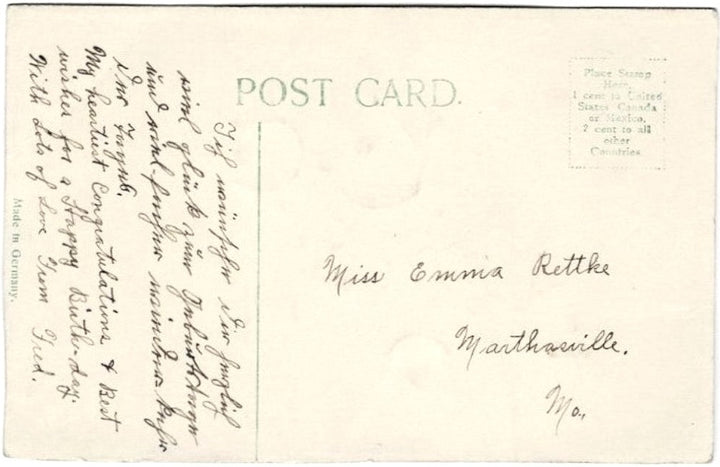 POST CARD.
Place Stamp
Here.
1 cent to United
States Canada
or Mexico,
2 cent to all
other
Countries.
Ich wünsche dir herzlich
viel glück zum Geburtstage
und noch
des Tages.
My heartiest Congratulations & Best
wishes for a Happy Birth-day.
With Lots of Love From Fred.
Made in Germany.
Miss Emma Rettke
Marthasville.
Mo.,